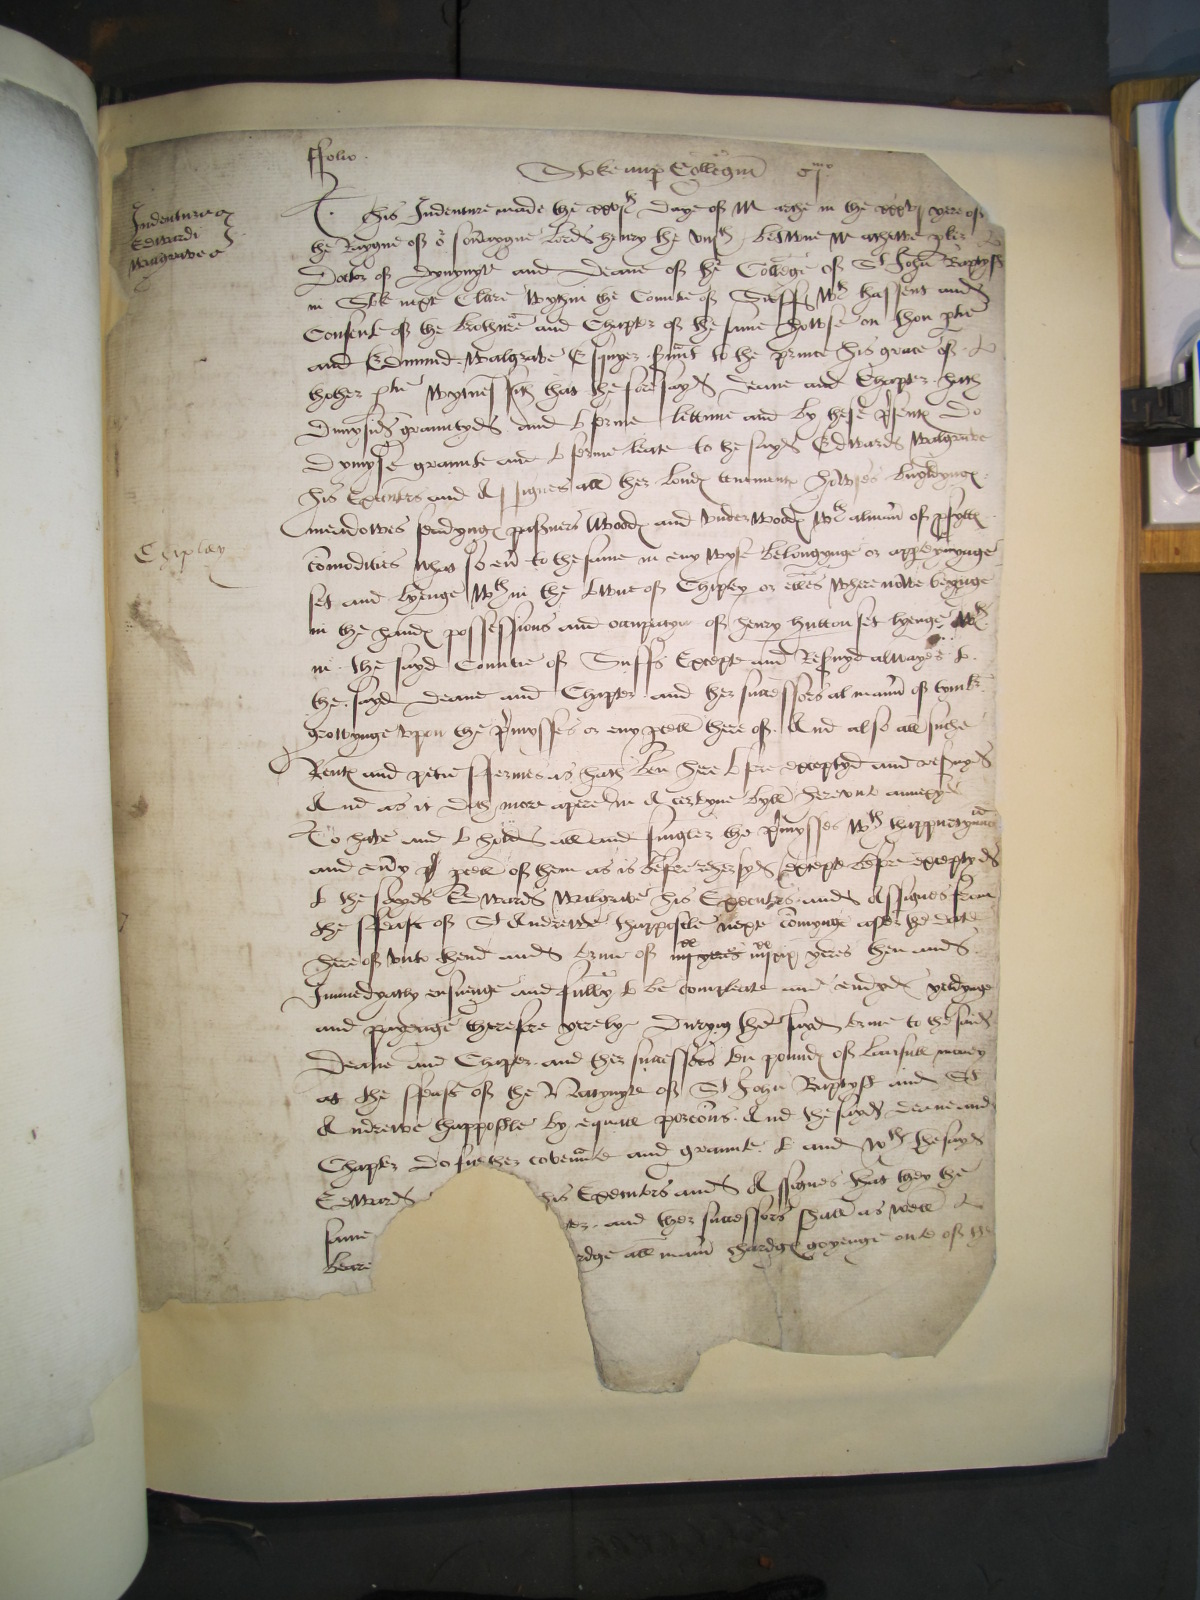 ffolio.
Stoke iuxª Collegiũ
Indentura
Edwardi
Walgrave
This Indenture made the xxvjth Daye of Marche in the yere of
the Raygne of oʳ sou'aygne Lorde henry the viijth betwne Mathewe
Doctor of Dyvynyte and Deane of the College of St John Baptyst
in Stoke next Clare wythin the Countie of Suff wth thassent and
Consente of the brethren and Chapter of the same howse on thon ptie
and Edmund Walgrave Esquyer to the prince his grace of
thother ptie wytnessith that the foresayd Deane and Chapter hath
Dimysid grauntyd and to ferme lettinne and by these psent Do
Dymyse graunte and to ferme leate to the sayd Edward Walgrave
his Executors and Assignes all ther lond tenement howses buyldyng
meadowes fedyng pastuers wood and underwood wth almanr of pfytt
comodities what so eur to the same in eny wyse belongynge or apperteynynge
Chiplay
set and lyenge wthin the towne of Chipley or elles where nowe beynge
in the hand possessions and occupacyn of henry hutton set lyenge wth
in the sayd Countie of Suff Excepte and Resuyd alwayes to
the sayd Deane and Chapter and ther successors al manr of tymbr
growynge upon the pmysses or eny pcell there of And also all suche
Rent and petie ffermes as hath ben here to fore exceptyd and resuyd
And as it doth more apere in A certeyne byll hereunto annexyd
To have and to hold all and singler the pmysses wth thappurtynanc
and eury pcell of them as is before rehersyd except before exceptyd
to the sayd Edward Walgrave his Executors and Assignes from
the ffeast of St Andrewe thappostle nexte comynge after the date
here of unto thend and terme of yeres then and
Immedyatly ensuenge and fully to be compleate and endyd yeldynge
and payenge therefore yerely Duryng the sayd terme to the said
Deane and Chapter and ther successors ten pound of lawfull money
at the ffeast of the Natyvyte of St John Baptyst and St
Andrewe thappostle by equall porcons And the sayd Deane and
Chapter do further covennte and graunte to and wth the sayd
Edward his Executors and Assignes that they the
same ter and ther successors shall as well
beare rdge all manr chardge goyenge oute of the